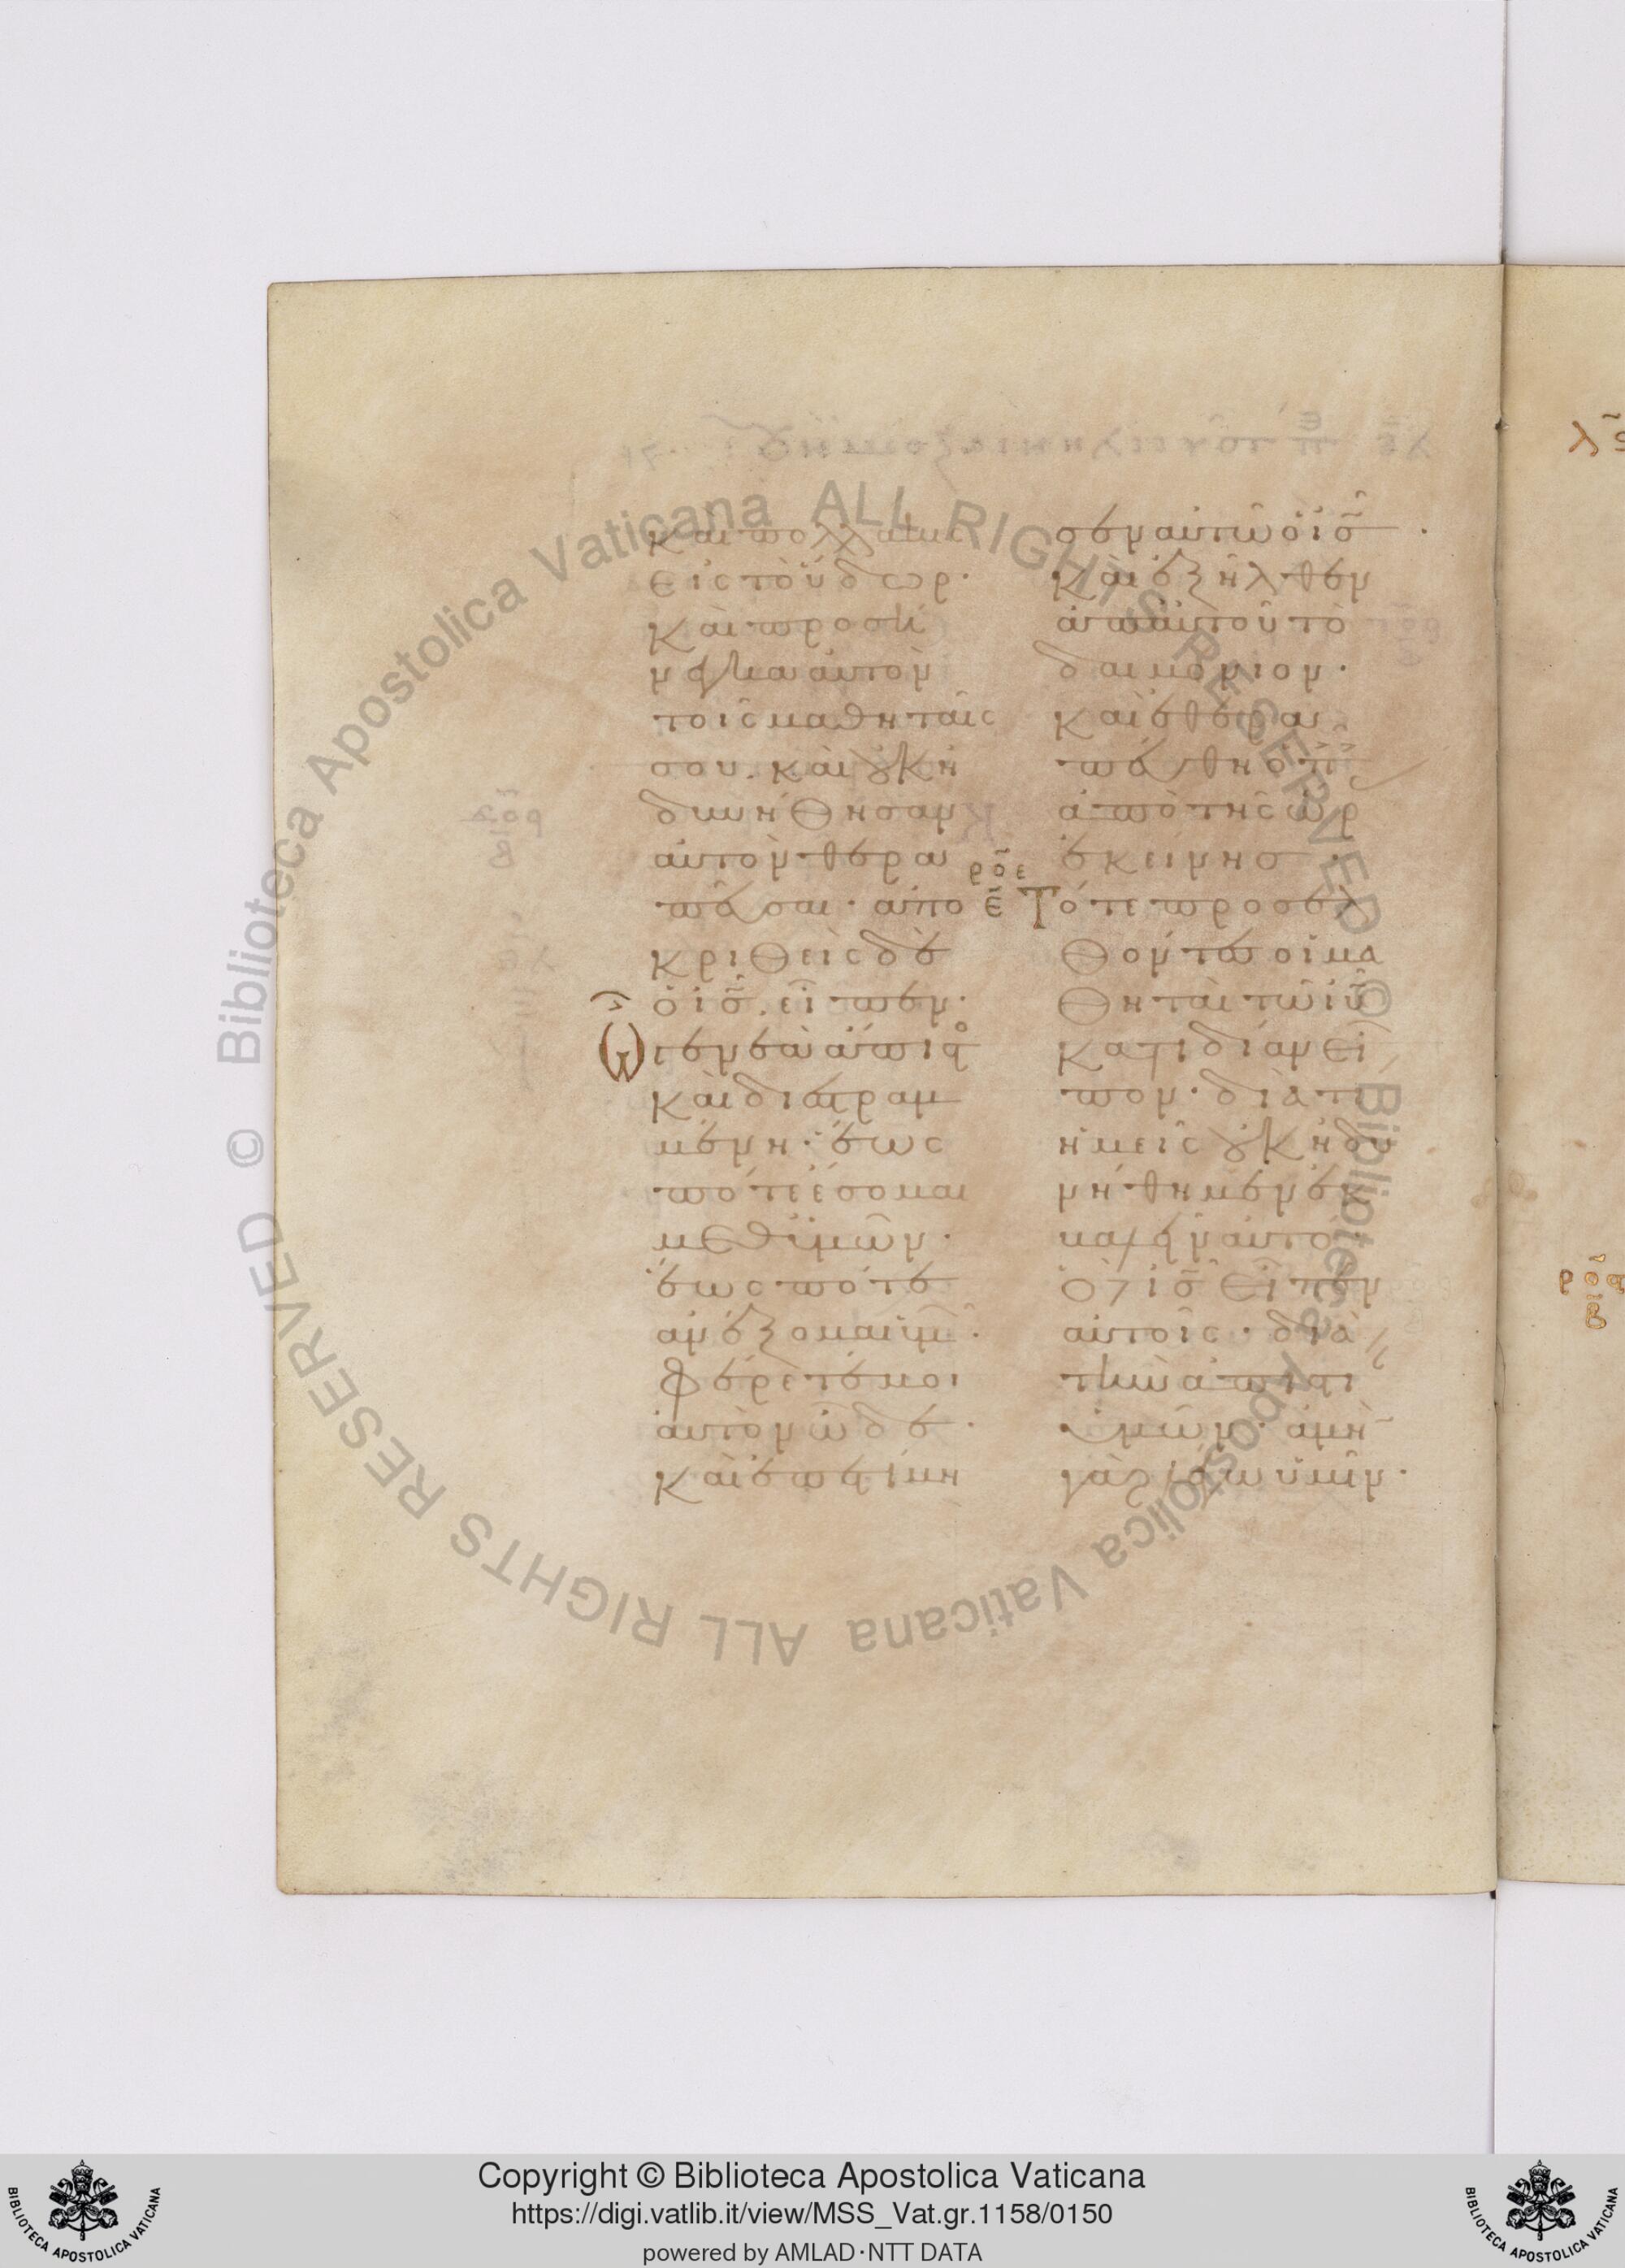 καὶ πολλάκις
εἰς τὸ ὕδωρ·
καὶ προσή
νεγκα αὐτὸν
τοῖς μαθηταῖς
σου. καὶ οὐκ ἠ
δυνήθησαν
αὐτὸν θερα
πεῦσαι· ἀπο
κριθεὶς δὲ
ὁ ις̃. εἶπεν·
Ὦ γενεὰ ἄπιστο
καὶ διεστραμ
μένη· ἕως
πότε ἔσομαι
μεθ' ὑμῶν·
ἕως πότε
ἀνέξομαι ὑμῶ·
Φέρετέ μοι
αὐτὸν ὧδε·
καὶ ἐπετίμη
σεν αὐτῶ ὁ ις̃·
καὶ ἐξῆλθεν
ἀπ' αὐτοῦ τὸ
δαιμόνιον·
καὶ ἐθερα
πεύθη ὁ παῖς
ἀπὸ τῆς ὥρ
ἐκείνησ·
ροε
ε Τότε προσελ
θόντες οἱ μα
θηταὶ τῶ ιυ̃
κατιδίαν εἶ
πον· διὰ τί
ἡμεῖς οὐκ ἠδυ
νήθημεν ἐκ
βαλεῖν αὐτό·
Ὁ δὲ ις̃ εἶπεν
αὐτοῖς· διὰ
τὴν ἀπιστί
ὑμῶν· ἀμὴν
γὰρ λέγω ὑμῖν·
Copyright © Biblioteca Apostolica Vaticana
https://digi.vatlib.it/view/MSS_Vat.gr.1158/0150
powered by AMLAD·NTT DATA
BIBLIOTECA APOSTOLICA VATICANA
BIBLIOTECA APOSTOLICA VATICANA
© Biblioteca Apostolica Vaticana ALL RIGHTS RESERVED © Biblioteca Apostolica Vaticana ALL RIGHTS RESERVED